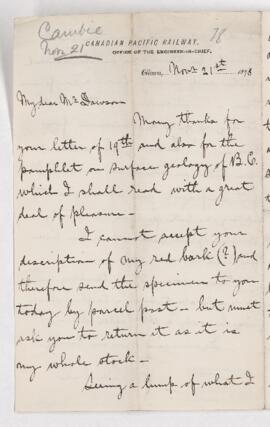 Cambie
Nov. 21
78
CANADIAN PACIFIC RAILWAY.
OFFICE OF THE ENGINEER-IN-CHIEF.
Ottawa, Novr. 21st 1878
My dear Mr Dawson
Many thanks for
your letter of 19th and also for the
pamphlet on surface geology of B.C.
which I shall read with a great
deal of pleasure -
I cannot accept your
description of my red bark (?) and
therefore send the specimen to you
today by parcel post - but must
ask you to return it as it is
my whole stock -
Seeing a lump of what I